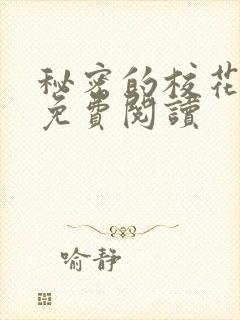 秘密的校花
免費閱讀
喻靜